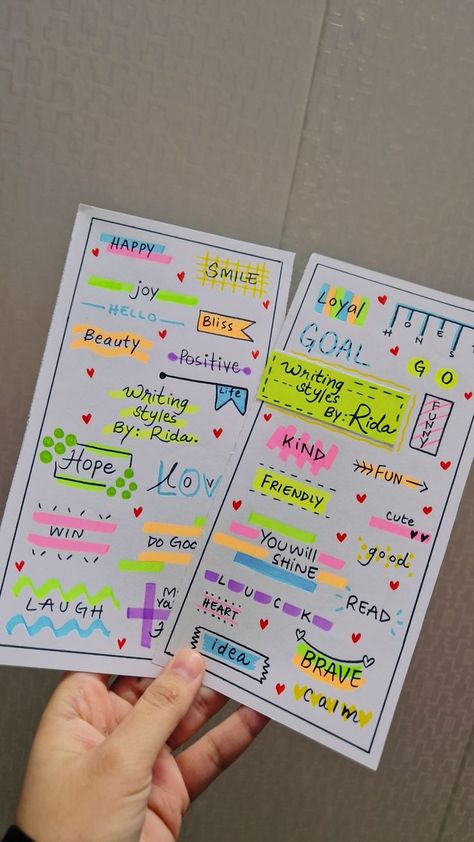 HAPPY
SMILE
joy
HELLO
Bliss
Beauty
Positive
Life
Writing
styles
By: Rida.
Hope
LOV
WIN
DO GOO
LAUGH
Loyal
HONES
GOAL
GO
Writing
styles
BY: Rida
FUNNY
KIND
FUN
FRIENDLY
cute
YOU will
SHINE
good
LUCK
READ
HEART
idea
BRAVE
calm